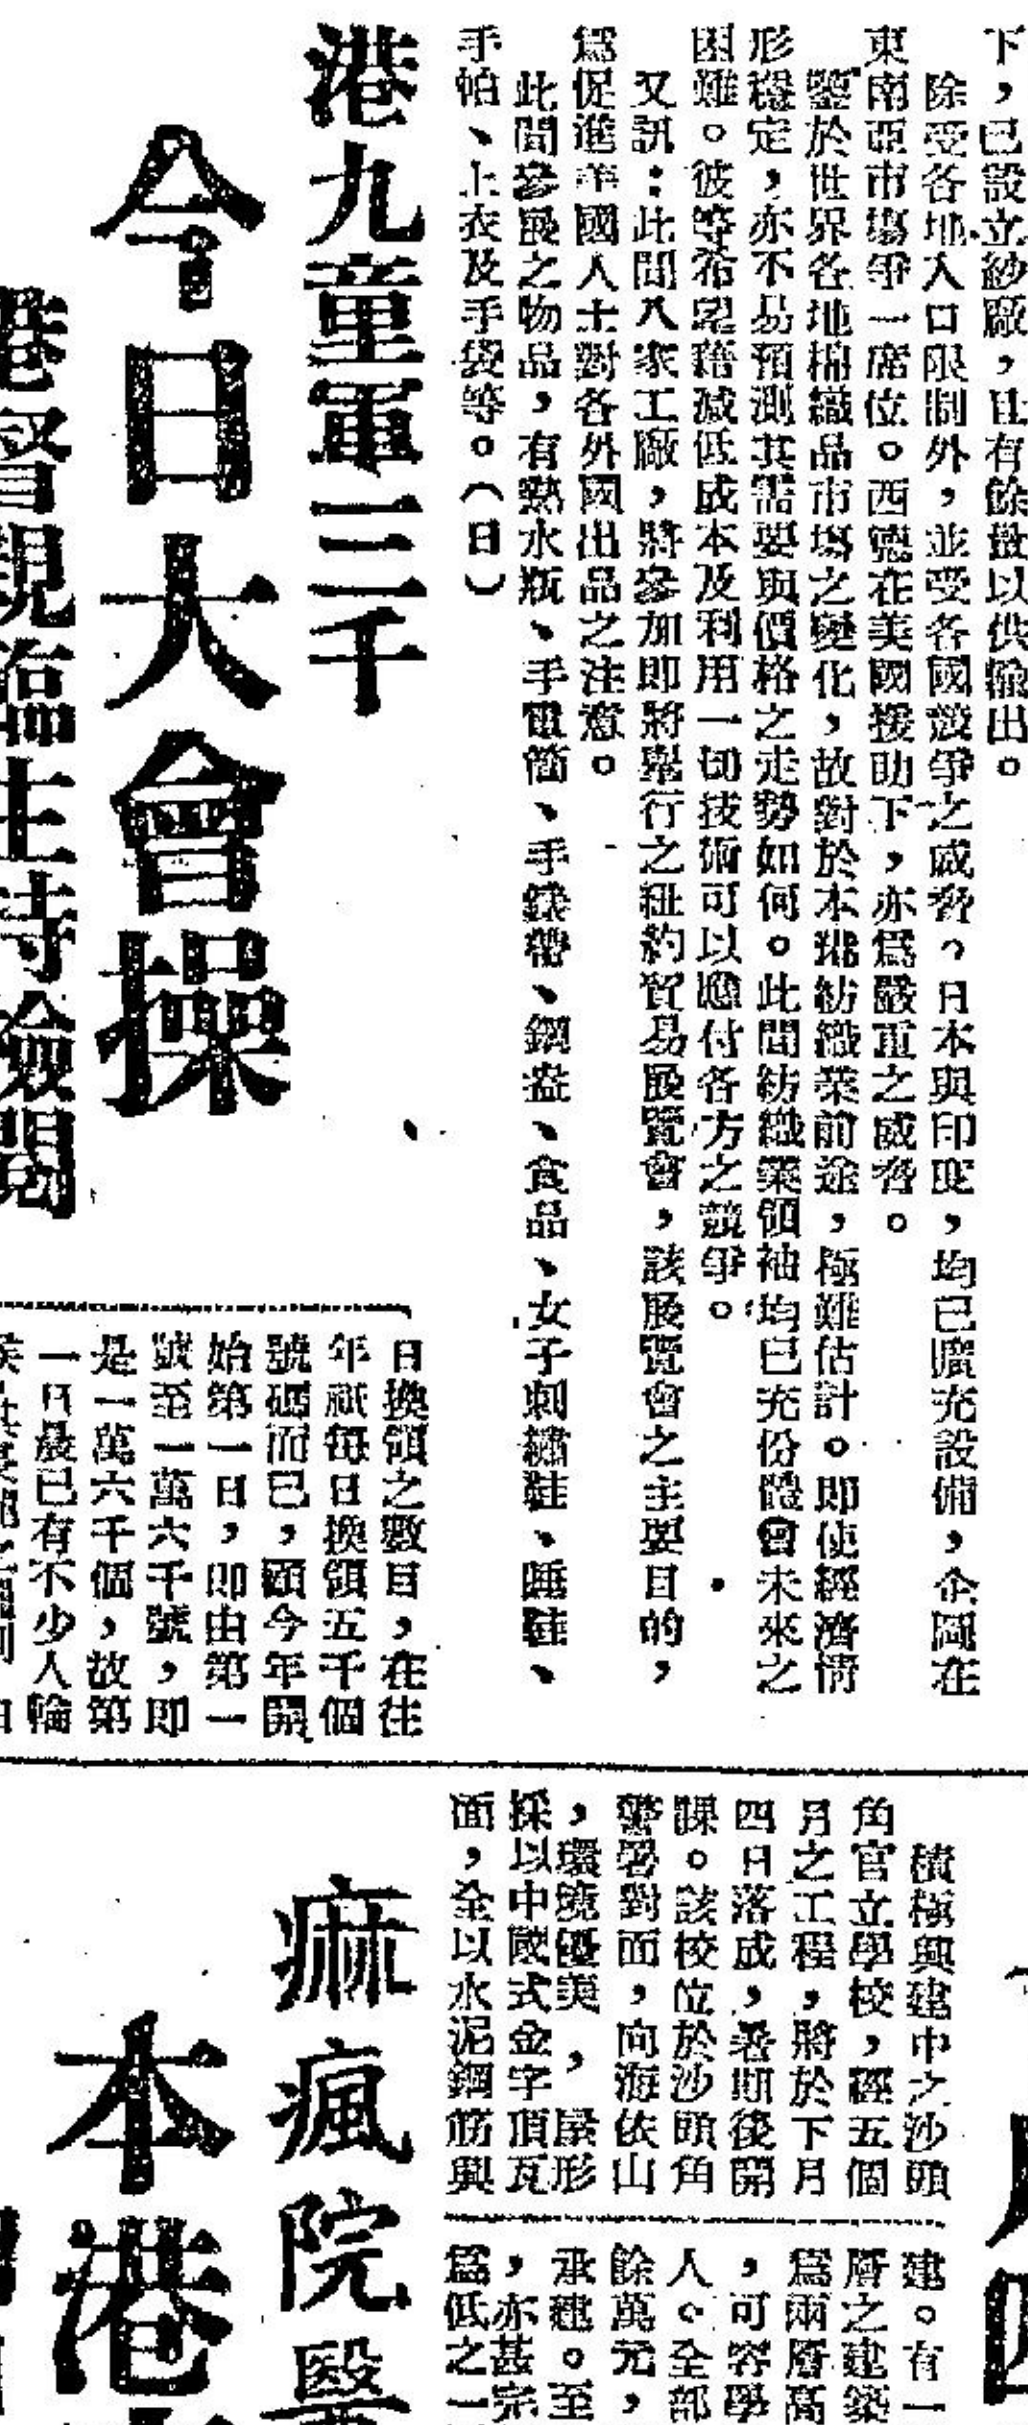 下，已設立紗廠，且有餘量以供輸出。
除受各地入口限制外，並受各國競爭之威脅。日本與印度，均已擴充設備，企圖在
東南亞市場爭一席位。西德在美國援助下，亦爲嚴重之威脅。
鑒於世界各地棉織品市場之變化，故對於本港紡織業前途，極難估計。即使經濟情
形穩定，亦不易預測其需要與價格之走勢如何。此間紡織業領袖均已充份體會未來之
困難。彼等希望藉減低成本及利用一切技術可以應付各方之競爭。
又訊：此間八家工廠，將參加即將舉行之紐約貿易展覽會，該展覽會之主要目的，
爲促進美國人士對各外國出品之注意。
此間參展之物品，有熱水瓶、手電筒、手錶帶、鋼盔、食品、女子刺繡鞋、睡鞋、
手帕、上衣及手袋等。（日）
港九童軍三千
今日大會操
港督親臨主持檢閱
日換領之數目，在往
年祇每日換領五千個
號碼而已，顧今年開
始第一日，即由第一
號至一萬六千號，即
是一萬六千個，故第
一日晨已有不少人輪
積極興建中之沙頭
角官立學校，經五個
月之工程，將於下月
四日落成，暑期後開
課。該校位於沙頭角
警署對面，向海依山
，環境優美，屋形
採以中國式金字頂瓦
面，全以水泥鋼筋興
建。有一
層之建築
爲兩層高
，可容學
人。全部
餘萬元，
承建。至
，亦甚完
爲低之一
痲瘋院醫
本港